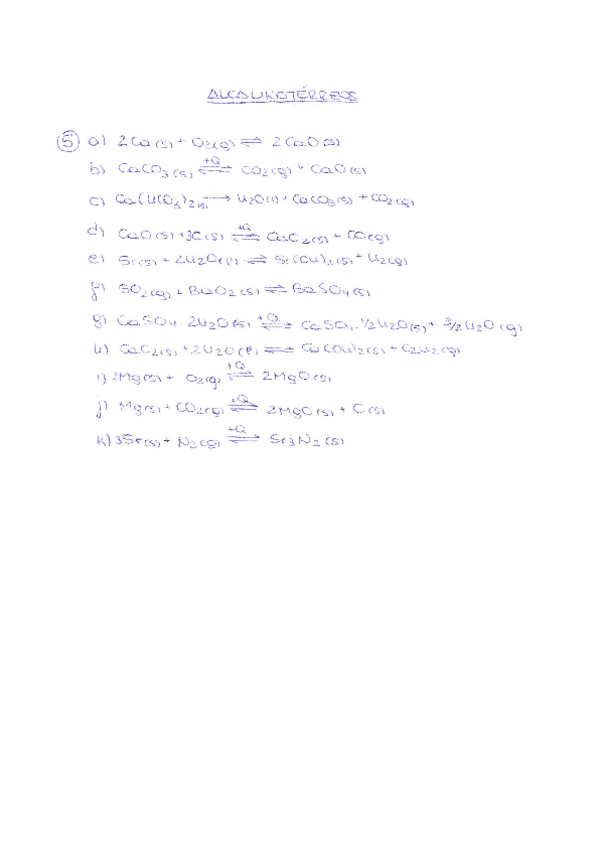 ALCALINOTÉRREOS
⑤ a) 2Ca(s) + O₂(g) ⇌ 2CaO(s)
b) CaCO₃(s) +Q ⇌ CO₂(g) + CaO(s)
c) Ca(HCO₃)₂(s) → H₂O(l) + CaCO₃(s) + CO₂(g)
d) CaO(s) + 3C(s) +Q ⇌ CaC₂(s) + CO(g)
e) Sr(s) + 2H₂O(l) ⇌ Sr(OH)₂(s) + H₂(g)
f) SO₂(g) + BaO₂(s) ⇌ BaSO₄(s)
g) CaSO₄·2H₂O(s) +Q ⇌ CaSO₄·½H₂O(s) + 3/2H₂O(g)
h) CaC₂(s) + 2H₂O(l) ⇌ Ca(OH)₂(s) + C₂H₂(g)
i) 2Mg(s) + O₂(g) +Q ⇌ 2MgO(s)
j) Mg(s) + CO₂(g) +Q ⇌ 2MgO(s) + C(s)
k) 3Sr(s) + N₂(g) +Q ⇌ Sr₃N₂(s)